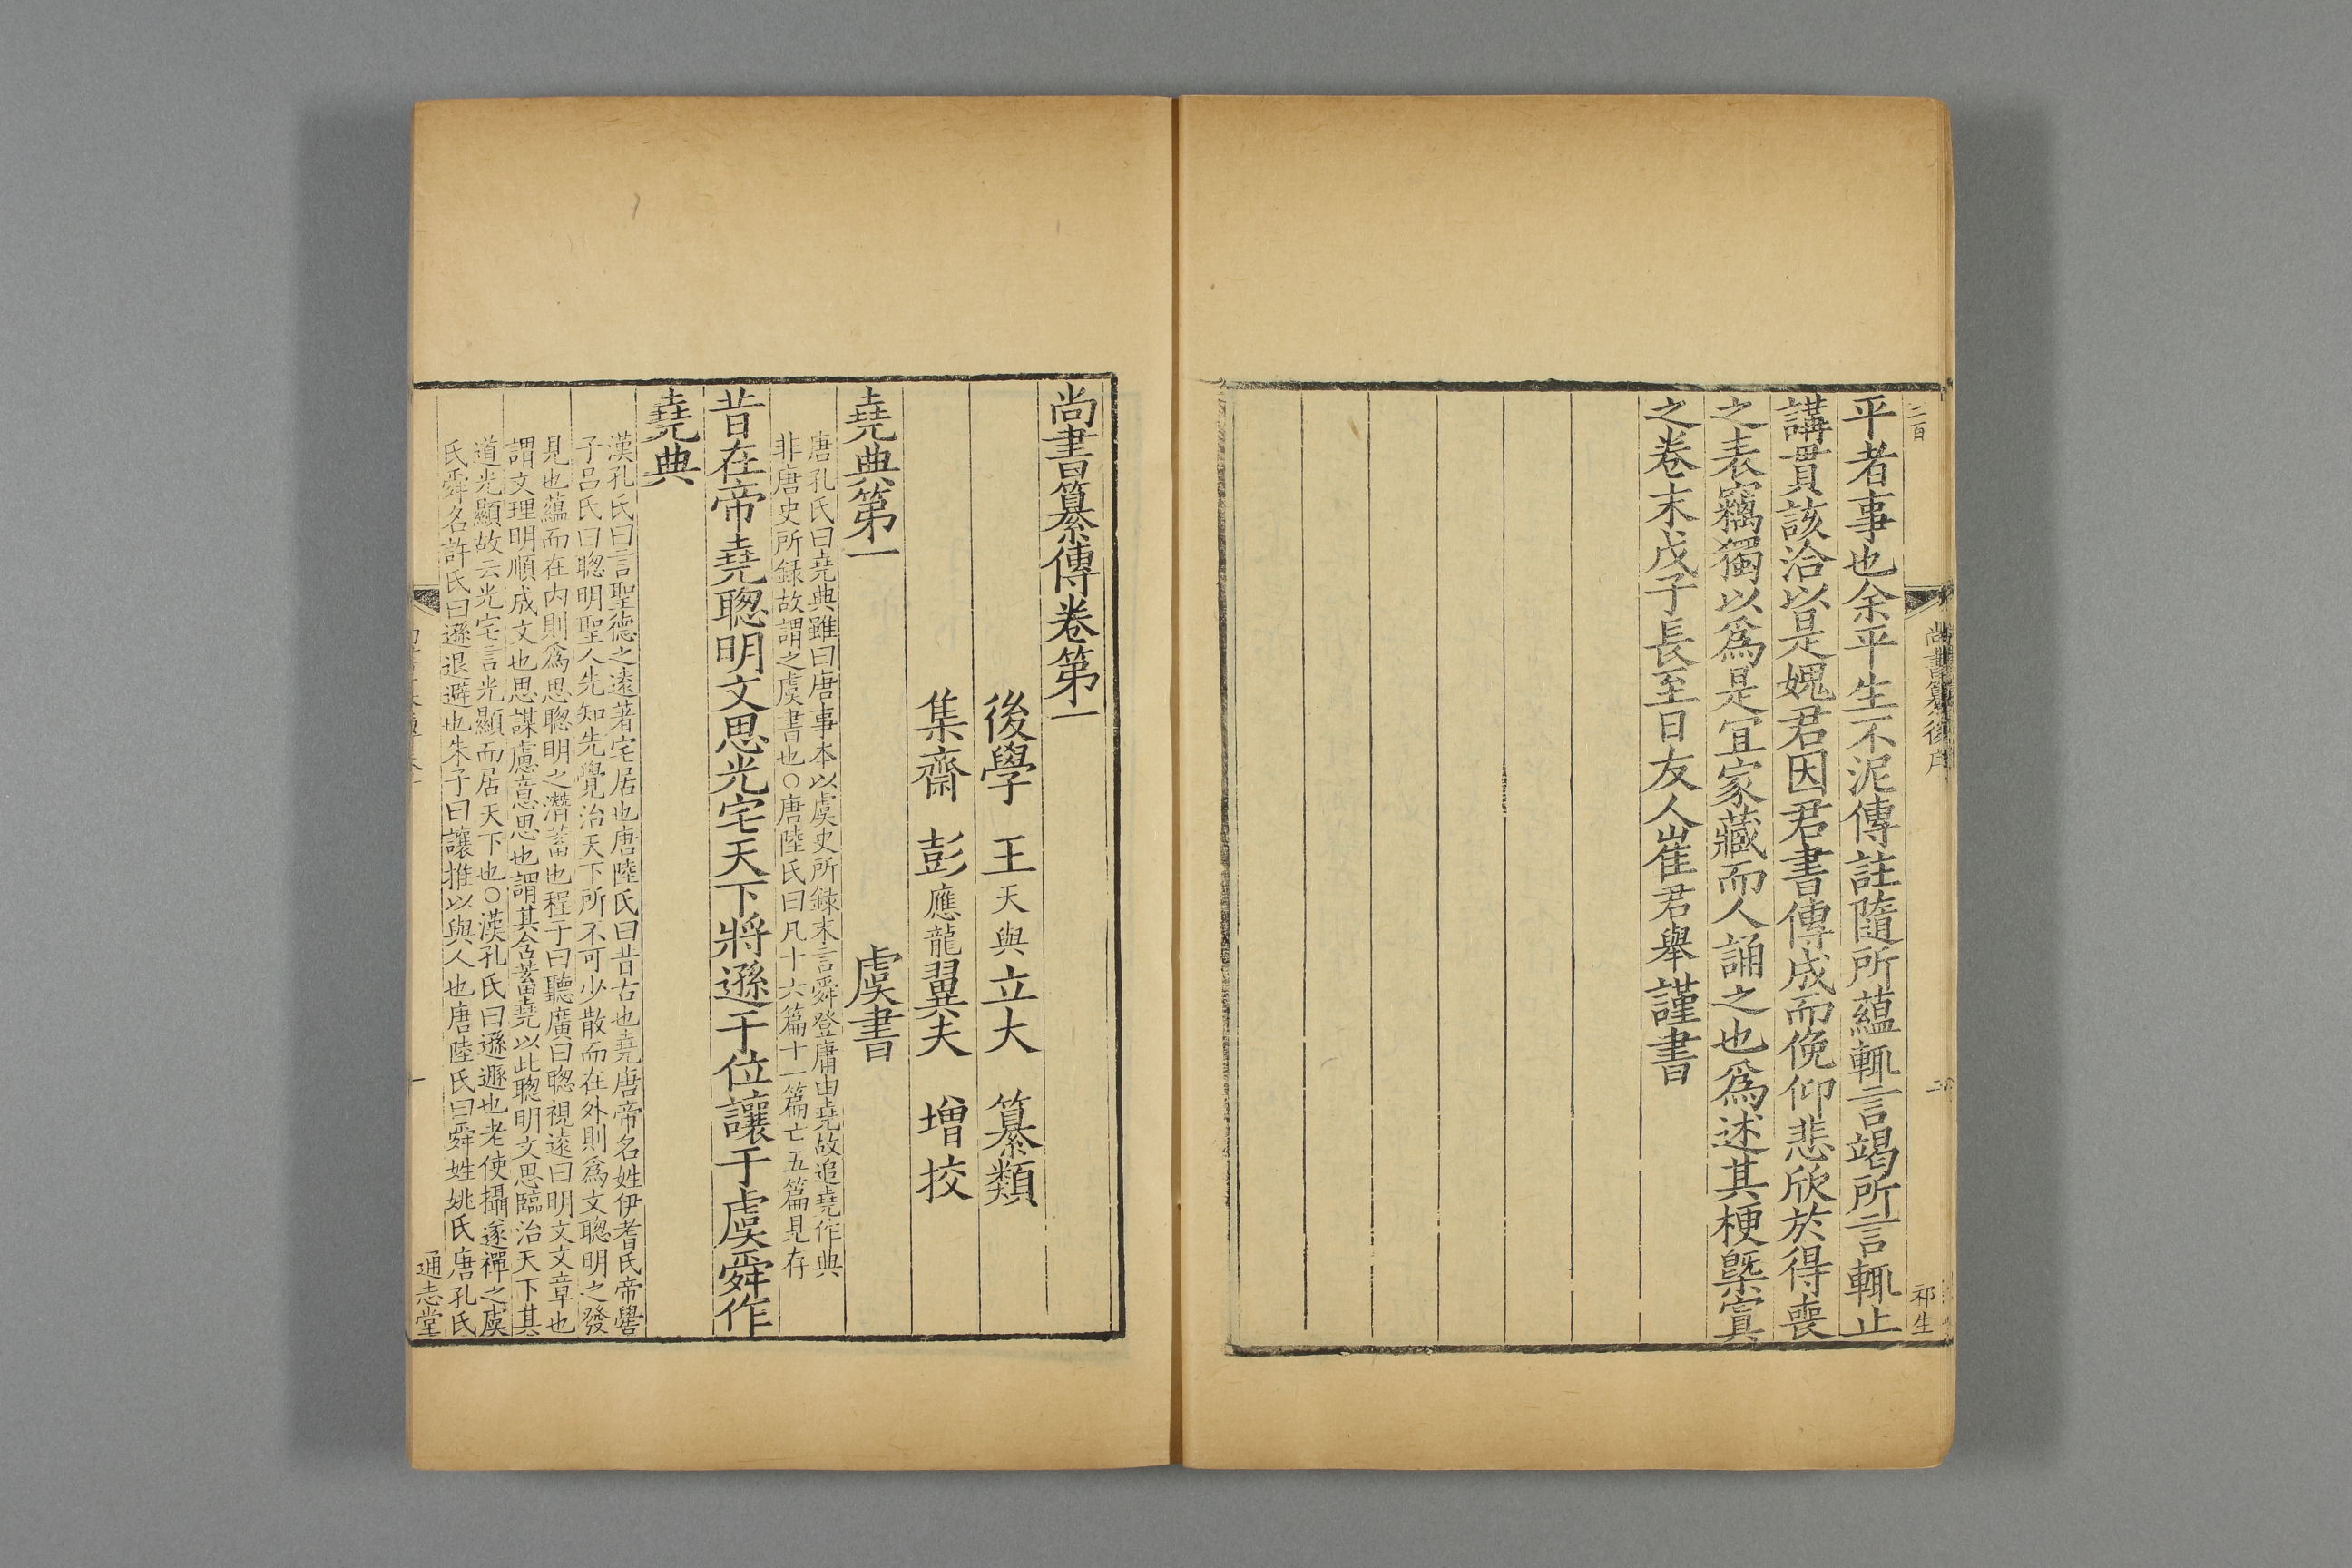 二百
尚書纂後序
二
祁生
平者事也余平生不泥傳註隨所蘊輒言竭所言輒止
講貫該洽以是媿君因君書傳成而俛仰悲欣於得喪
之表竊獨以爲是宜家藏而人誦之也爲述其梗槩寘
之卷末戊子長至日友人崔君舉謹書
尚書纂傳卷第一
後學 王天與立大 纂類
集齋 彭應龍翼夫 增挍
堯典第一 虞書
唐孔氏曰堯典雖曰唐事本以虞史所録末言舜登庸由堯故追堯作典
非唐史所録故謂之虞書也○唐陸氏曰凡十六篇十一篇亡五篇見存
昔在帝堯聰明文思光宅天下將遜于位讓于虞舜作
堯典
漢孔氏曰言聖德之遠著宅居也唐陸氏曰昔古也堯唐帝名姓伊耆氏帝嚳
子呂氏曰聰明聖人先知先覺治天下所不可少散而在外則爲文聰明之發
見也蘊而在内則爲思聰明之潛蓄也程子曰聽廣曰聰視遠曰明文文章也
謂文理明順成文也思謀慮意思也謂其含蓄堯以此聰明文思臨治天下其
道光顯故云光宅言光顯而居天下也○漢孔氏曰遜遯也老使攝遂禪之虞
氏舜名許氏曰遜退避也朱子曰讓推以與人也唐陸氏曰舜姓姚氏唐孔氏
一
通志堂